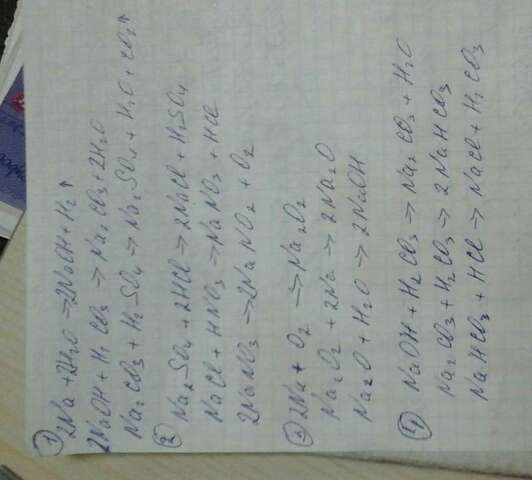 1) 2Na + 2H2O → 2NaOH + H2↑
2NaOH + H2CO3 → Na2CO3 + 2H2O
Na2CO3 + H2SO4 → Na2SO4 + H2O + CO2↑
2) Na2SO4 + 2HCl → 2NaCl + H2SO4
NaCl + HNO3 → NaNO3 + HCl
2NaNO3 → 2NaNO2 + O2
3) 2Na + O2 → Na2O2
Na2O2 + 2Na → 2Na2O
Na2O + H2O → 2NaOH
4) NaOH + H2CO3 → Na2CO3 + H2O
Na2CO3 + H2CO3 → 2NaHCO3
NaHCO3 + HCl → NaCl + H2CO3